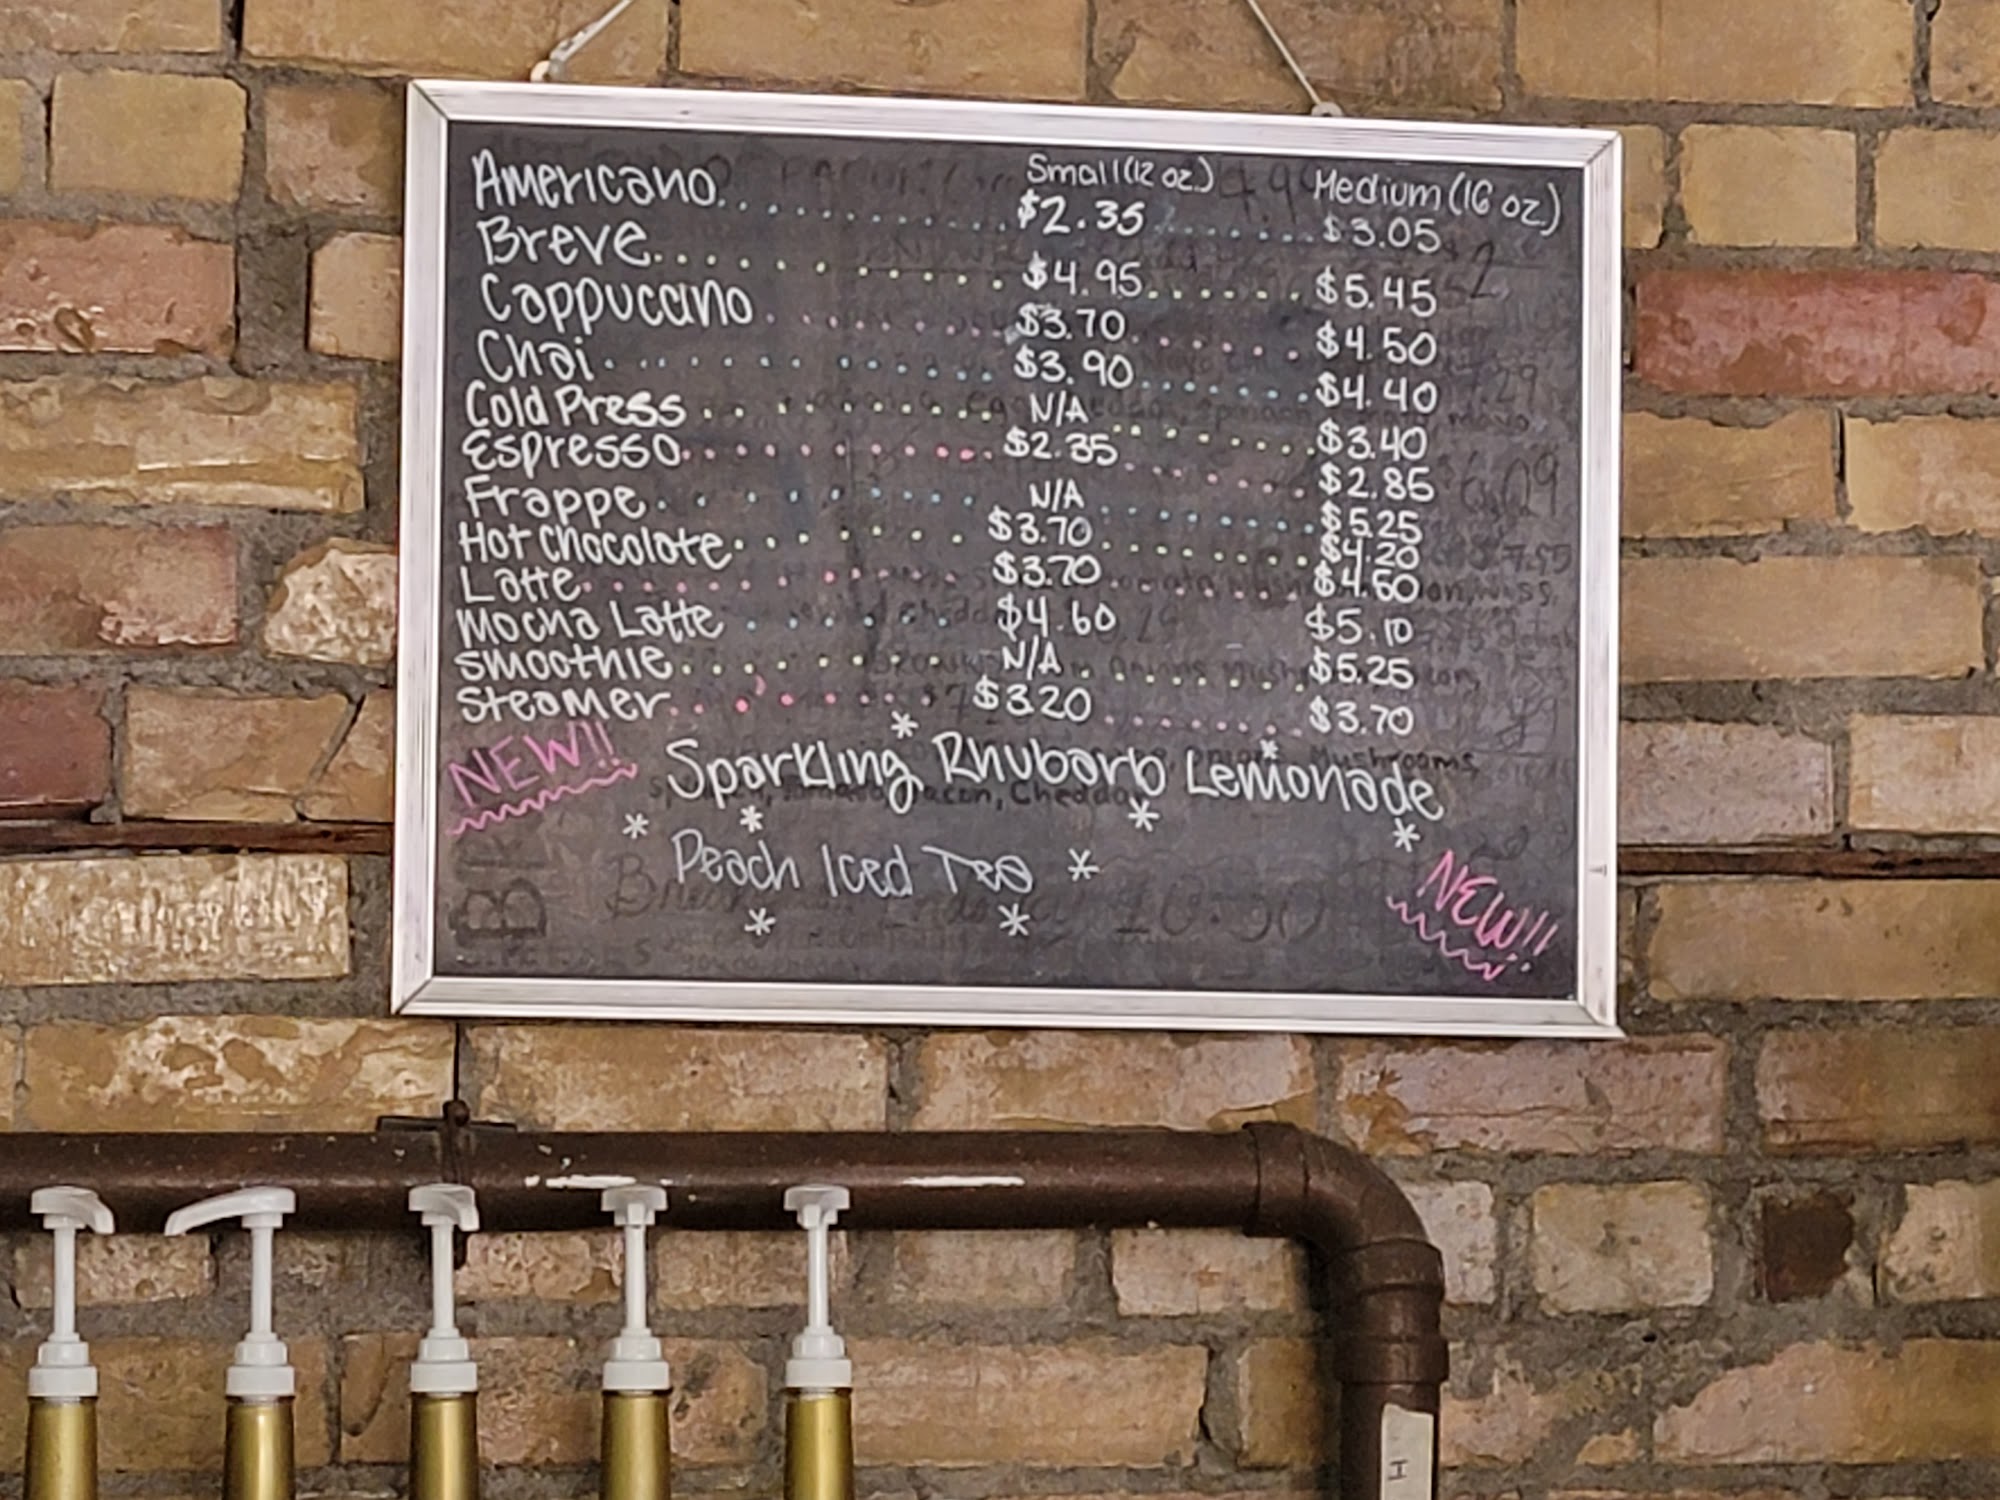 Small (12 oz.) Medium (16 oz.)
Americano. $2.35 $3.05
Breve $4.95 $5.45
Cappuccino $3.70 $4.50
Chai $3.90 $4.40
Cold Press N/A $3.40
Espresso $2.35 $2.85
Frappe N/A $5.25
Hot Chocolate $3.70 $4.20
Latte $3.70 $4.60
Mocha Latte $4.60 $5.10
Smoothie N/A $5.25
Steamer $3.20 $3.70
NEW!! Sparkling Rhubarb Lemonade
Peach Iced Tea
NEW!!